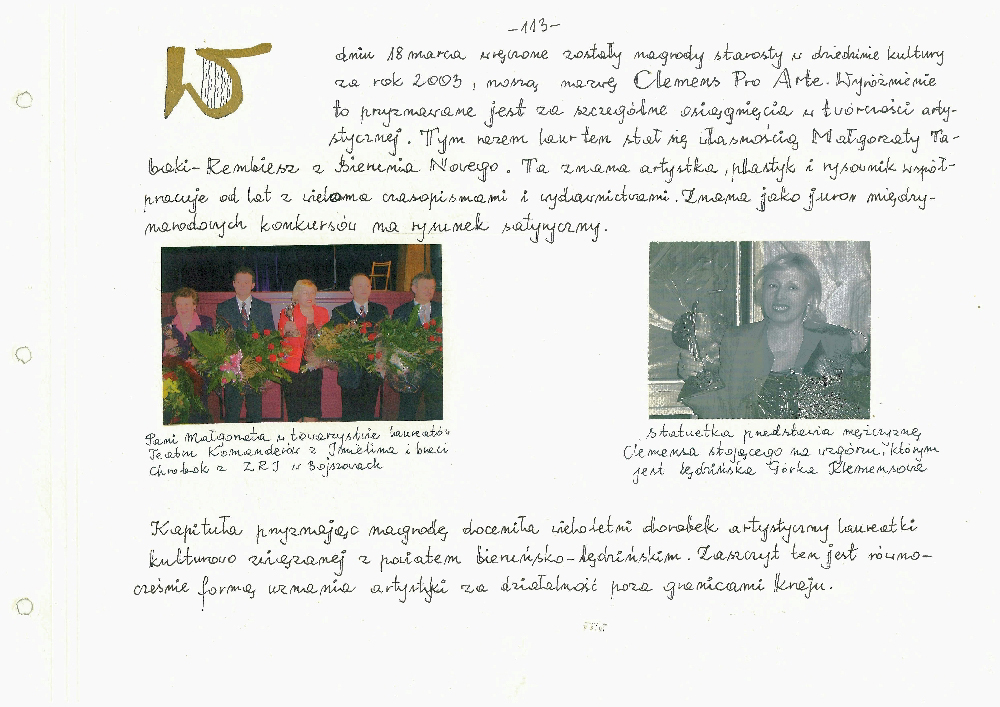 -113-
W dniu 18 marca wręczone zostały nagrody starosty w dziedzinie kultury
za rok 2003, noszą nazwę Clemens Pro Arte. Wyróżnienie
to przyznawane jest za szczególne osiągnięcia w twórczości arty-
stycznej. Tym razem laur ten stał się własnością Małgorzaty Ta-
baki-Rembiesz z Bierunia Nowego. Ta znana artystka, plastyk i rysownik współ-
pracuje od lat z wieloma czasopismami i wydawnictwami. Znana jako juror między-
narodowych konkursów na rysunek satyryczny.
Pani Małgorzata w towarzystwie laureatów
Teatru Komanderów z Imielina i braci
Chrobok z ZRJ w Bojszowach
Statuetka przedstawia mężczyznę
Clemensa stojącego na wzgórzu, którym
jest Lędzińska Górka Klemensowa
Kapituła przyznając nagrodę doceniła wieloletni dorobek artystyczny laureatki
kulturowo związanej z powiatem bieruńsko-lędzińskim. Zaszczyt ten jest równo-
cześnie formą uznania artystyki za działalność poza granicami kraju.